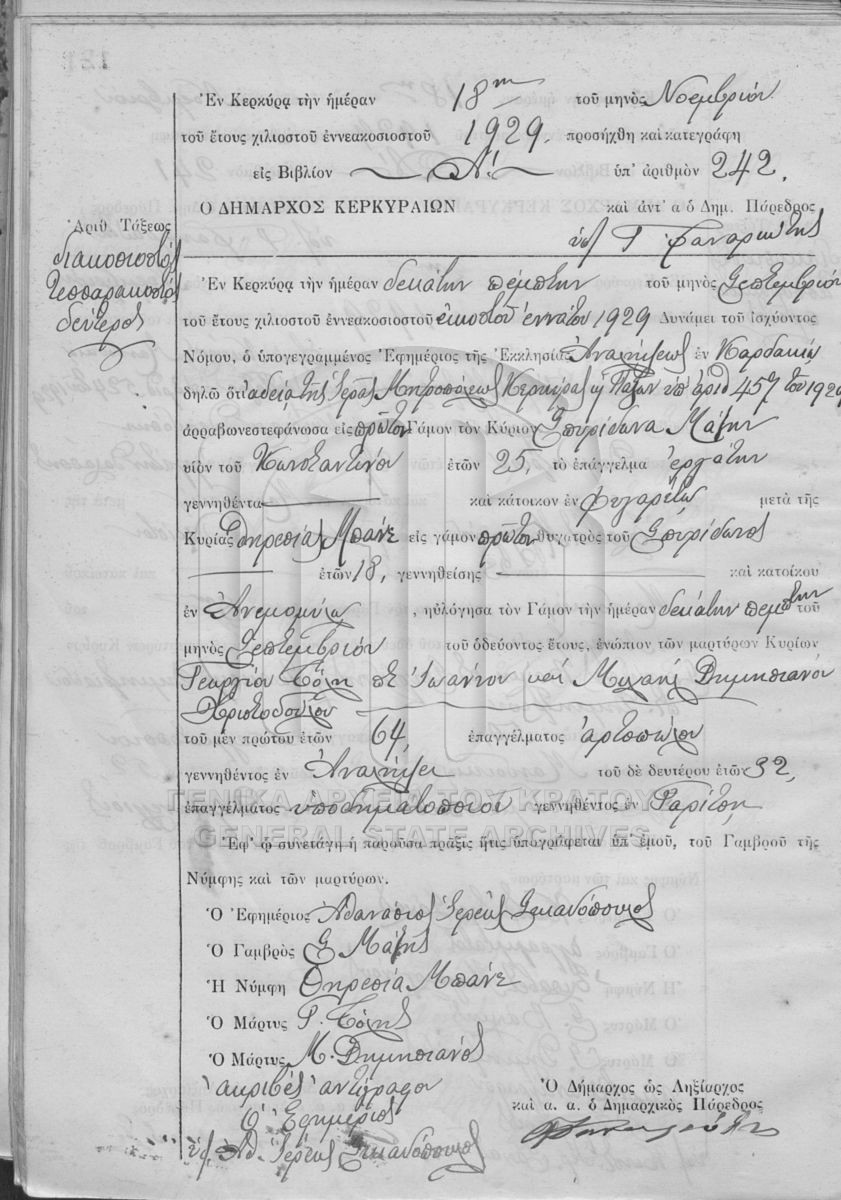 Ἐν Κερκύρᾳ τὴν ἡμέραν 18ην τοῦ μηνὸς Νοεμβρίου
τοῦ ἔτους χιλιοστοῦ ἐννεακοσιοστοῦ 1929. προσήχθη καὶ κατεγράφη
εἰς Βιβλίον Α! ὑπ' ἀριθμὸν 242.
Ο ΔΗΜΑΡΧΟΣ ΚΕΡΚΥΡΑΙΩΝ καὶ ἀντ' α ὁ Δημ. Πάρεδρος
Γ. Φαναριώτης
Ἀριθ Τάξεως
διακοσιοστὸς
τεσσαρακοστὸς
δεύτερος
Ἐν Κερκύρᾳ τὴν ἡμέραν δεκάτην πέμπτην τοῦ μηνὸς Σεπτεμβρίου
τοῦ ἔτους χιλιοστοῦ ἐννεακοσιοστοῦ εἰκοστοῦ ἐννάτου 1929 Δυνάμει τοῦ ἰσχύοντος
Νόμου, ὁ ὑπογεγραμμένος Ἐφημέριος τῆς Ἐκκλησίας Ἀναλήψεως ἐν
δηλῶ ὅτι ἀδείᾳ τῆς Ἱερᾶς Μητροπόλεως Κερκύρας κ Παξῶν ὑπ' ἀριθ 457 τοῦ 1929
ἀρραβωνεστεφάνωσα εἰς πρῶτον Γάμον τὸν Κύριον Σπυρίδωνα Μάζην
υἱὸν τοῦ Κωνσταντίνου ἐτῶν 25, τὸ ἐπάγγελμα ἐργάτην
γεννηθέντα καὶ κάτοικον ἐν Φιγαρέτῳ μετὰ τῆς
Κυρίας Θηρεσίας Μπάνε εἰς γάμον πρῶτον θυγατρὸς τοῦ Σπυρίδωνος
ἐτῶν 18, γεννηθείσης καὶ κατοίκου
ἐν Ἀνεμομύλῳ, ηὐλόγησα τὸν Γάμον τὴν ἡμέραν δεκάτην πέμπτην τοῦ
μηνὸς Σεπτεμβρίου τοῦ ὁδεύοντος ἔτους, ἐνώπιον τῶν μαρτύρων Κυρίων
Γεωργίου πὲ Ἰωάννου καὶ Μιχαὴλ Δημησιάνου
Χριστοδούλου
τοῦ μὲν πρώτου ἐτῶν 64, ἐπαγγέλματος ἀρτοπώλου
γεννηθέντος ἐν Ἀναλήψει τοῦ δὲ δευτέρου ἐτῶν 32,
ΓΕΝΙΚΑ ΑΡΧΕΙΑ ΤΟΥ ΚΡΑΤΟΥΣ
ἐπαγγέλματος ὑποδηματοποιοῦ γεννηθέντος ἐν Γαρίτσῃ
GENERAL STATE ARCHIVES
Ἐφ' ᾧ συνετάγη ἡ παροῦσα πρᾶξις ἥτις ὑπογράφεται ὑπ' ἐμοῦ, τοῦ Γαμβροῦ τῆς
Νύμφης καὶ τῶν μαρτύρων.
Ὁ Ἐφημέριος Ἀθανάσιος Ἱερεὺς Σκιαδόπουλος
Ὁ Γαμβρὸς Σ Μάζης
Ἡ Νύμφη Θηρεσία Μπάνε
Ὁ Μάρτυς Γ.
Ὁ Μάρτυς Μ. Δημησιάνος
ἀκριβὲς ἀντίγραφον
Ὁ Ἐφημέριος
Ἀθ. Ἱερεὺς Σκιαδόπουλος
Ὁ Δήμαρχος ὡς Ληξίαρχος
καὶ α. α. ὁ Δημαρχικὸς Πάρεδρος